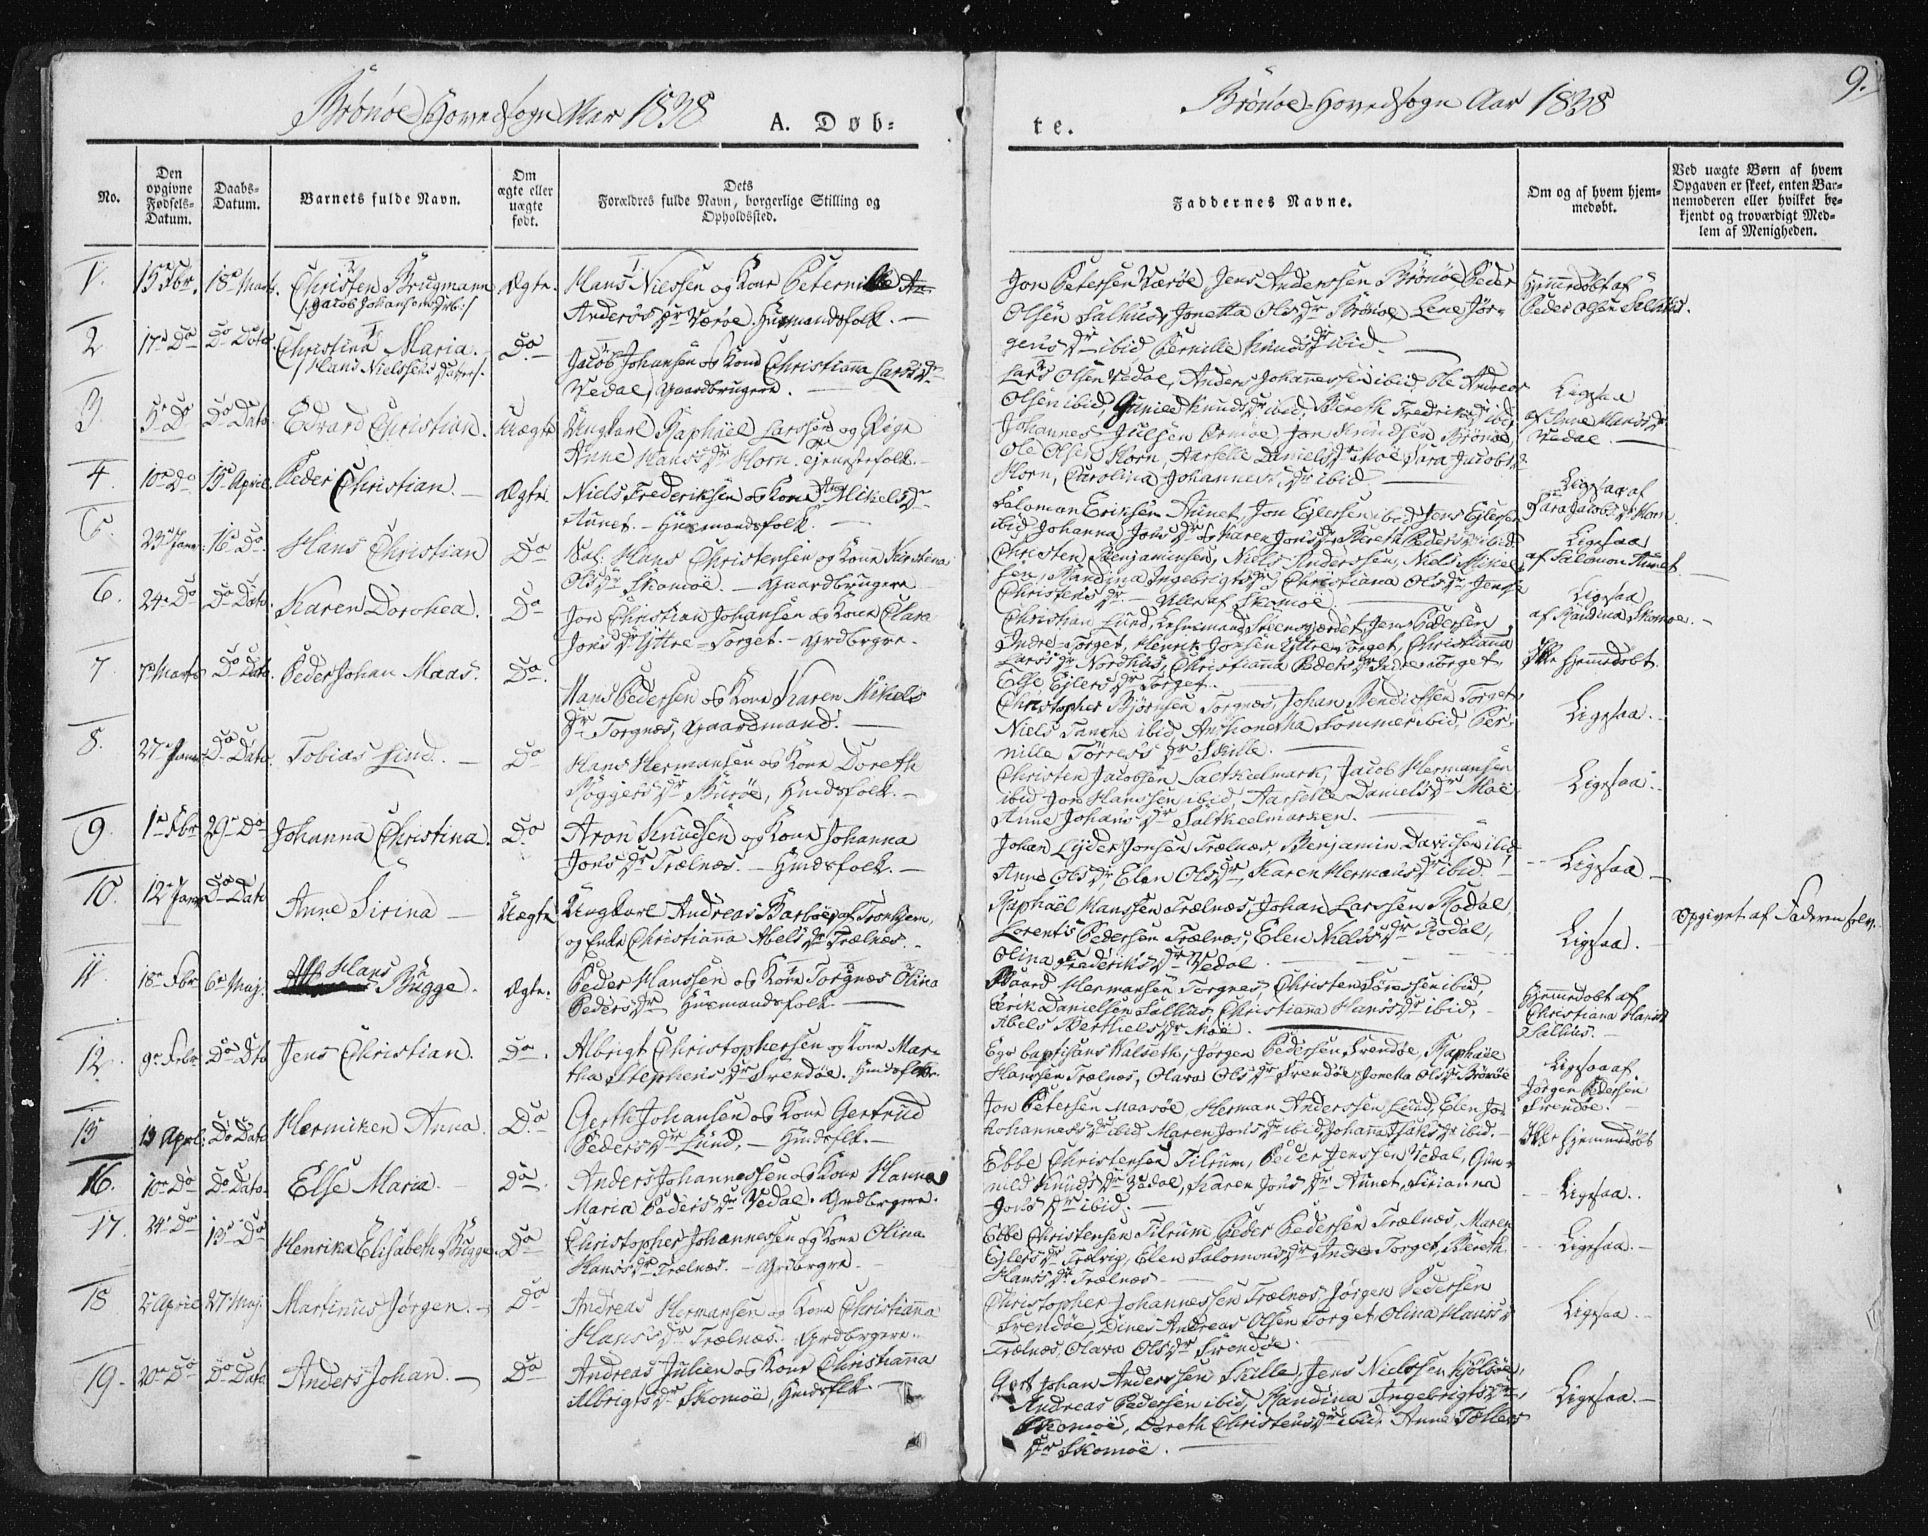 Brönöe Hovedsogn Aar 1838
A. Døb-
No.
Den opgivne Fødsels-Datum.
Daabs-Datum.
Barnets fulde Navn.
Om ægte eller uægte født.
Dets Forældres fulde Navn, borgerlige Stilling og Opholdssted.
1. 15de Fbr. 18de Marts. Christen Brugmann Ægte. Hans Nielssen og Kone Peternille
/:Jacob Johansens :/ Anders Dr Værøe. Huusmandsfolk. —
2 17de Do Do Dato. Christina Maria. Do — Jacob Johansen og Kone Christianna Lars Dr
/:Hans Nielssens :/ Vedal, Gaardbrugere. —
3. 5 Do Do Dato. Edvard Christian. Uægte Ungkarl Raphael Larssen og Pige
Anne Hans Dr Horn. Tjenestefolk. —
4. 10de Do 15de April. Peder Christian. — Ægte. Niels Frederiksen og Kone Mikels Dr
Aunet. — Huusmandsfolk. —
5. 23de Janr. 16de Do. Hans Christian Do Hans Christensen og Kone Kirstena
Ols Dr Skomöe. — Gaardbrugere
6. 24de Do Do Dato. Karen Dorothea. Do Jon Christian Johansen og Kone Clara
Jons Dr Yttre-Torget. — Grdbrgre. —
7 7de Marts Do Dato. Peder Johan Maas. Do. Hans Pedersen og Kone Karen Mikels
Dr Torgnæs, Gaardmand. —
8. 27de Janr Do Dato. Tobias Lind. — Do Hans Hermansen og Kone Doreth
Röggers Dr Buröe, Hmdsfolk. —
9 1de Fbr 29de Do Johanna Christina. Do Aron Knudsen og Kone Johanna
Jons Dr Trælnæs. — Hmdsfolk. —
10. 12de Janr Do Dato Anne Sirina — Uægte Ungkarl Andreas Barböe af Tronhjem,
og Enke Christianna Abels Dr Trælnæs. —
11 18de Fbr 6de Maj. Hans Bugge. Ægte. Peder Hanssen og Kone Torgnæs Olina
Peders Dr Huusmandsfolk. —
12. 9de Febr. Do Dto Jens Christian. Do. Albrigt Christophersen og Kone Mar-
tha Stephens Dr Trendöe. Hmdsflk.
13 13 April. Do Dato Hermiken Anna. Do. Gerth Johansen og Kone Gertrud
Peders Dr Lund, — Hmdsflk. —
16. 10de Do Do Dato Else Maria. Do. Anders Johannessen og Kone Hanna
Maria Peders Dr Vedal. Grdbrgere.
17. 24de Do 13de Do Henrika Elisabeth Bugge. Do Christopher Johannessen og Kone Olina
Hans Dr Trælnæs. — Grdbrgre. —
18 2de April 27de Maj. Martinus Jörgen. — Do Andreas Hermansen og Kone Christianna
Hans Dr Trælnæs. — Grdbrgere. —
19. 20de Do Do Dato Anders Johan. — Do Andreas Julien og Kone Christianna
Albrigts Dr Skomöe, Hmdsflk. —
Brönöe-Hovedsogn Aar 1838
9.
te.
Faddernes Navne.
Om og af hvem hjemmedøbt.
Ved uægte Børn af hvem Opgaven er skeet, enten Barnemoderen eller hvilket bekjendt og troværdigt Medlem af Menigheden.
Jon Petersen Værøe, Jens Anderssen Brönöe, Peder
Olsen Salhus, Jonetta Ols Dr Brönöe, Lene Jör-
gens Dr ibid Pernille Knuds Dr ibid. —
Hjemmedöbt af Peder Olsen Salhus.
Lars Olsen Vedal, Anders Johannessen ibid, Ole Andreas
Olsen ibid, Gunild Knuds Dr ibid, Bereth Fredriks Dr ibid.
Ligesaa af Anne Hans Dr Vedal. —
Johannes Julsen Jon Knudsen Brönöe,
Ole Olsen Horn, Aarselle Daniels Dr Moe, Sara Jacobs Dr
Horn, Carolina Johannes Dr ibid —
Ligesaa af Sara Jacobs Dr Horn.
Salomon Eriksen Aunet, Jon Eylersen ibid, Jens Eylersen
ibid Johanna Jons Dr og Karen Jons Dr, Bereth Peders Dr ibid
Ligesaa af Salomon Aunet —
Christen Benjaminsen, Niels Anderssen, Niels Mikel-
sen, Randina Ingebrigts Dr, Christiana Ols Dr, Jensse
Christens Dr. — Alle af Skomöe. —
Ligesaa af Randina Skomoe. —
Christian Lund, Jens Pedersen
Indre-Torget, Henrik Jonsen Yttre-Torget, Christianna
Lars Dr Nordhus, Christianna Peders Dr Indre Torget,
Else Eylers Dr Torget.
Ikke hjemmedöbt.
Christopher Björnsen Torgnæs, Johan Bendicssen Torget,
Niels Tanche ibid, Anthonetha Sommer ibid, Per-
nille Törres Dr Skille. —
Ligesaa. —
Christen Jacobsen Saltkielmark, Jacob Hermansen
ibid Jon Hanssen ibid, Aarselle Daniels Dr Moe
Anne Johans Dr Saltkeelmarken. —
Ligesaa. —
Johan Lyder Jonsen Trælnæs, Benjamin Davidsen ibid,
Anne Ols Dr, Elen Ols Dr, Karen Hermans Dr ibid. —
Ligesaa —
Raphael Hanssen Trælnæs, Johan Larssen Rodal,
Lorents Pedersen Trælnæs, Elen Niels Dr Rodal,
Olina Frederiks Dr Vedal —
Ligesaa. —
Opgivet af Faderen selv.
Hermansen Torgnes, Christen Sörenssen ibid,
Erik Danielsen Salhus, Christianna Hans Dr ibid,
Abels Berthels Dr Moe. —
Hjemmedöbt af Christiana Hans Dr Salhus. —
Ego baptisans Kalseth, Jörgen Pedersen Trendöe, Raphael
Hanssen Trælnæs, Olava Ols Dr Trendöe, Jonetta Ols Dr Brönöe
Ligesaa af Jörgen Pedersen Trendöe. —
Jon Petersen Maasöe, Herman Anderssen Lund, Elen Jo-
hannes Dr ibid Maren Jons Dr ibid, Johanna Isaks Dr ibid. —
Ikke hjemmedöbt
Ebbe Christensen Tilrum, Peder Jenssen Vedal, Gun-
nild Knuds Dr Vedal, Karen Jons Dr Aunet, Sirianna
Jons Dr ibid. —
Ligesaa. .
Ebbe Christensen Tilrum Peder Pedersen Trælnæs, Maren
Eylers Dr Trælvig, Elen Salomons Dr Indre Torget, Bereth
Hans Dr Trælnæs. —
Ligesaa. —
Christopher Johannessen Trælnæs, Jörgen Pedersen
Trendöe, Dines Andreas Olsen Torget, Olina Hans Dr
Trælnæs, Olava Ols Dr Trendöe.
Ligesaa. —
Gert Johan Anderssen Skille, Jens Nielssen Kjölsöe,
Andreas Pedersen ibid, Randina Ingebrigts Dr
Skomöe, Doreth Christens Dr ibid, Anne Tollers
Dr Skomöe. —
Ligesaa. —